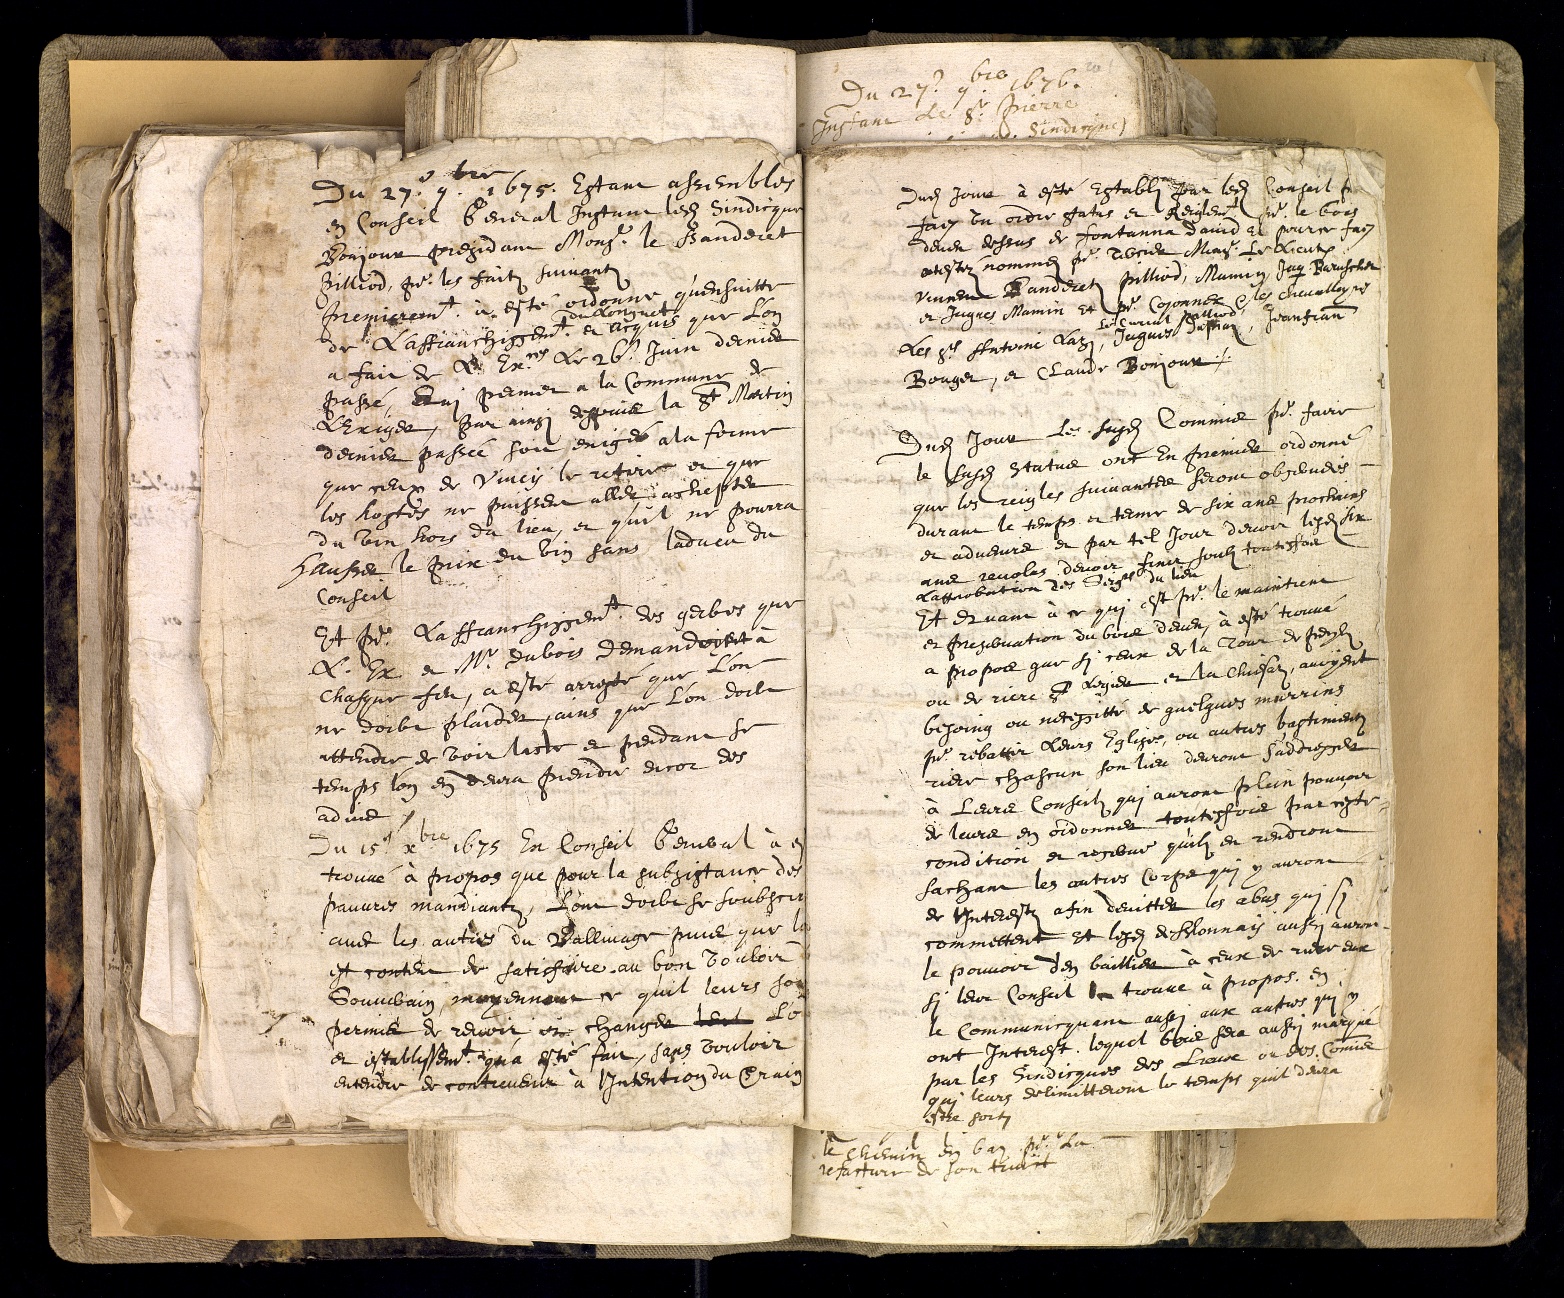 Du 27.e 9.bre 1675. Estant assembles
en Conseil General Instant lesd Sindicque
Bonjour presidant Monsr. le Banderet
Billiod, pr. les fait suivant
Premieremt. à esté ordonné quensuitte
de Laffranchissemt. du Longuet et acquis que Lon
a fait de L. Ex.ces Le 26. Juin dernier
passé, qui permet a la Commune de
Lexiger, par ainsi deppuis la St Martin
dernier passée soit exigée a la forme
que ceux de Vincy le retire et que
les hostes ne puissent aller achepter
du vin hors du lieu, et quil ne pourra
hausser le prix du vin sans ladveu du
Conseil
Et pr. Laffranchissemt. des gerbes que
L. Ex et Mr. dubois demandoient à
chasque feu, a esté arresté que Lon
ne doibt plaider, ains que Lon doibt
attendre de voir et pendant se
temps lon en devra prendre encor des
advis
Du 15.e Xbre 1675 En Conseil General à e
trouvé à propos que pour la subsistance des
pauvres mandiants, Lon doibt se soubscri
avec les autres du Balliage puis que
est content de satisfaire au bon vouloir
Souverain, moyennant ce quil leurs soi
permis de revoir, changer Lo
et establissemt. qui a esté fait, sans vouloir
entendre de contrevenir à l'Intention du Souverain
Du 27.e 9.bre 1676.
Instant Le Sr. Pierre
Sindicque
Dud Jour à esté Establi par led Conseil
faire un ordre status et Reiglemt. pr. le bois
devens dessus de fontanna david et pour ce faire
estez nommez pr. Mr. Le Lieut.
Vincent Banderet pilliod, Mamin, Jaq
et Jaques Mamin Et pr. Coionnex les chevalleyre
Les Srs Anthoine Lazi, Le Curial pilliod, Jaques , Jean fran
Bouget, et Claude Bonjour ./.
Dud Jour Les susd Commis pr. faire
le susd Statue ont En premier ordonné
que les reigles suivantes seront observées
durant le temps et terme de six ans prochains
et advenir et par tel Jour devoir lesd six
ans revolus devoir finir soub touteffois
Lapprobation des Seigrs du lieu
Et devant à ce qui est pr. le maintient
et preservation du bois devens à esté trouvé
a propos que si ceux de la Tour de peylz
ou de riere St Legier et la Chiesaz, avoyent
besoing ou necessitté de quelques marrins
pr. rebattir Leurs Eglise, ou autres bastiments
riere chascun son lieu devront s'addresser
à Leurs Conseilz qui auront plein pouvoir
de leurs en ordonner touteffois par ceste
condition et reserve quilz en rendront
sachant les autres Corps qui y auront
de l'Interestz afin deviter les abus qui si
commettent Et lesd desblonnais aussi auront
le pouvoir den baillier à ceux de riere eux
si leur Conseil le trouve à propos en
le Communicquant aussi aux autres qui y
ont Interest. lequel bois sera aussi marqué
par les Sindicques des Lieux ou des Commis
qui leurs delimitteront le temps quil devra
estre sorti
le chemin en bas pr. La
refacture de son truict